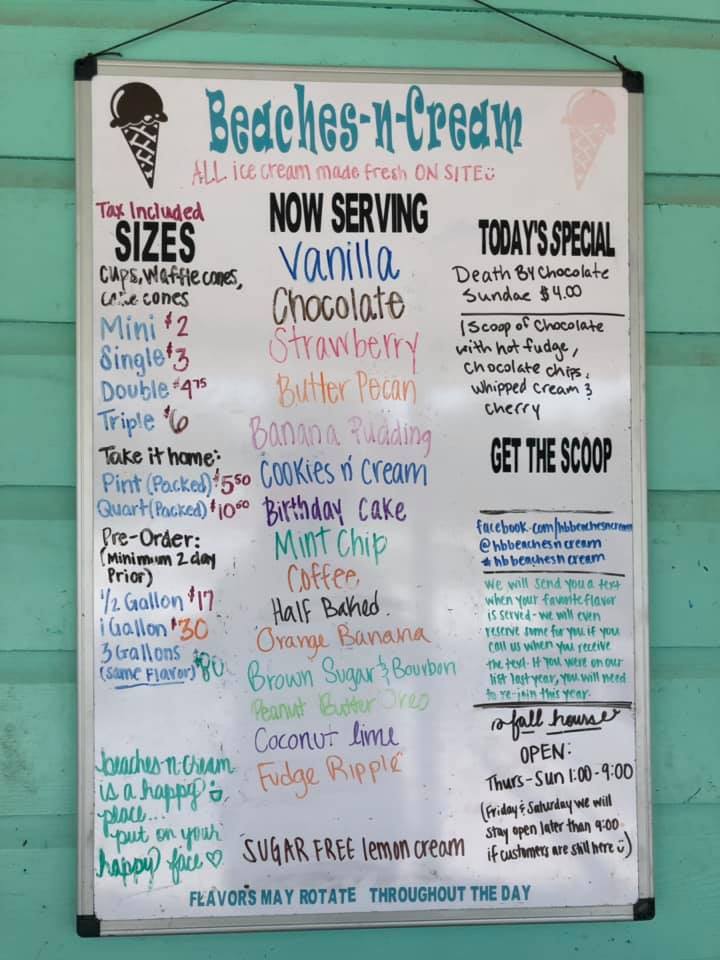 Beaches-n-Cream
ALL ice cream made fresh ON SITE
Tax Included
SIZES
Cups, Waffle cones,
cake cones
Mini $2
Single $3
Double $4.75
Triple $6
Take it home:
Pint (Packed) $5.50
Quart (Packed) $10.00
Pre-Order:
(Minimum 2 day
Prior)
1/2 Gallon $17
1 Gallon $30
3 Gallons
(same flavor) $80
beaches-n-cream
is a happy
place...
put on your
happy face ♡
NOW SERVING
Vanilla
Chocolate
Strawberry
Butter Pecan
Banana Pudding
Cookies n' Cream
Birthday Cake
Mint Chip
Coffee
Half Baked
Orange Banana
Brown Sugar & Bourbon
Peanut Butter Oreo
Coconut lime
Fudge Ripple
SUGAR FREE lemon cream
TODAY'S SPECIAL
Death By Chocolate
Sundae $4.00
1 Scoop of Chocolate
with hot fudge,
chocolate chips,
whipped cream &
cherry
GET THE SCOOP
facebook.com/hbbeachesncream
@hbbeachesncream
#hbbeachesncream
We will send you a text
when your favorite flavor
is served - we will even
reserve some for you if you
call us when you receive
the text. If you were on our
list last year, you will need
to re-join this year.
fall hours
OPEN:
Thurs-Sun 1:00-9:00
(Friday & Saturday we will
stay open later than 9:00
if customers are still here)
FLAVORS MAY ROTATE THROUGHOUT THE DAY